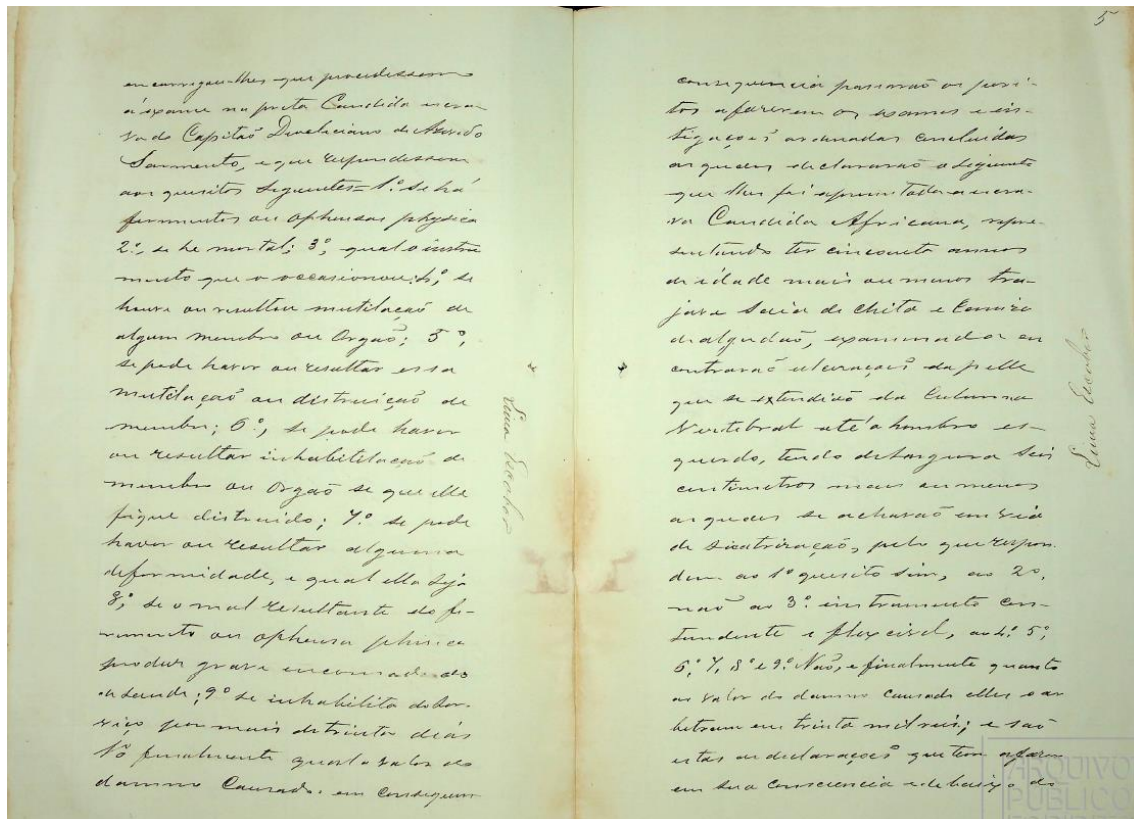 encarregou-lhes que procedessem
á exame na preta Candida escra-
va do Capitaõ Deoliciano de Azevedo
Sarmento, e que respondessem
aos quesitos seguintes = 1º. se há
ferimentos ou ophensas physica
2º, se he mortal; 3º, qual o instru
mento que o occasionou; 4º, se
houve ou resultou mutilaçaõ de
algum membro ou Orgaõ; 5º,
se pode haver ou resultar essa
mutilaçaõ ou distruiçaõ de
membro; 6º, se pode haver
ou resultar inhabilitaçaõ de
membro ou Orgaõ se que elle
fique distruido; 7º. se pode
haver ou resultar alguma
deformidade, e qual ella seja
8º, se o mal resultante do fe-
rimento ou ophensa phisica
produz grave encommodo
a saude; 9º se inhabilita do ser-
viço por mais de trinta dias
10 finalmente qual o valor do
damno Causado. em consequen-
Lima Escobar
5
consequencia passaraõ os peri-
tos a fazerem os exames e ins-
tigaçoẽs ordenadas concluidas
as quaes declararaõ o seguinte
que lhes foi apresentada a escra-
va Candida Africana, repre-
sentando ter cincoenta annos
de idade mais ou menos tra-
java saia de chita e Camiza
de algudaõ, examinada en
contraraõ ulceraçoẽs da pelle
que se extendiaõ da Columna
Vertebral até o hombro es-
querdo, tendo de largura seis
centimetros mais ou menos
as quaes se achavaõ em via
de sicatrizaçaõ, pelo que respon-
dem ao 1º quesito sim, ao 2º,
naõ ao 3º. instrumento con-
tundente e flexcivel, ao 4º. 5º,
6º. 7, 8º e 9º. Naõ, e finalmente quanto
ao valor do damno causado elles o ar
bitram em trinta mil reis; e saõ
estas as declaraçoẽs que tem a fazer
em sua consciencia e debaixo do
Lima Escobar
ARQUIVO
PÚBLICO